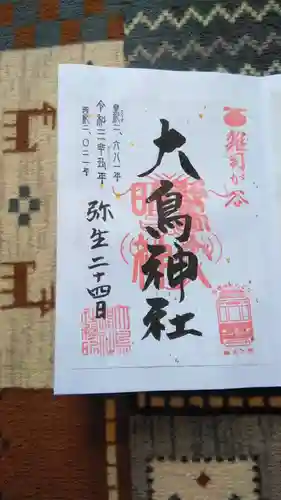 雑司が谷
大鳥神社
皇紀二、六八一年
令和三年辛丑年
西暦二、〇二一年
弥生二十四日